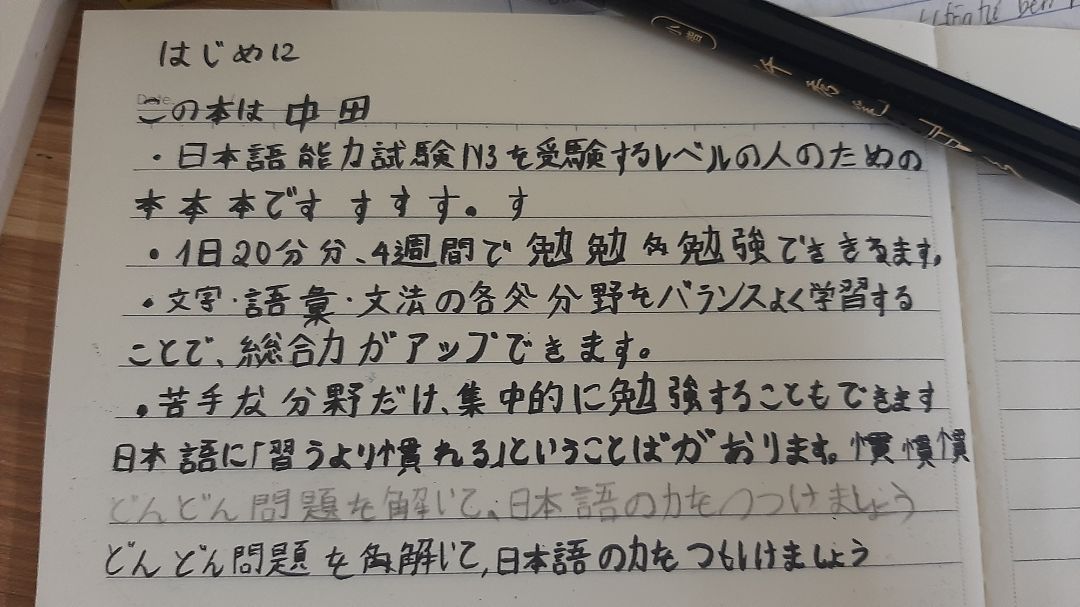 はじめに
この本は 中田
・日本語能力試験N3を受験するレベルの人のための
本本本です す す す。す
・1日20分分、4週間で 勉 勉 勉強でききるます。
・文字・語彙・文法の各分野をバランスよく学習する
ことで、総合力がアップできます。
・苦手な分野だけ、集中的に勉強することもできます
日本語に「習うより慣れる」ということばがおります。慣慣慣
どんどん問題を解いて、日本語の力をつつけましょう
どんどん問題を解いて、日本語の力を けましょう